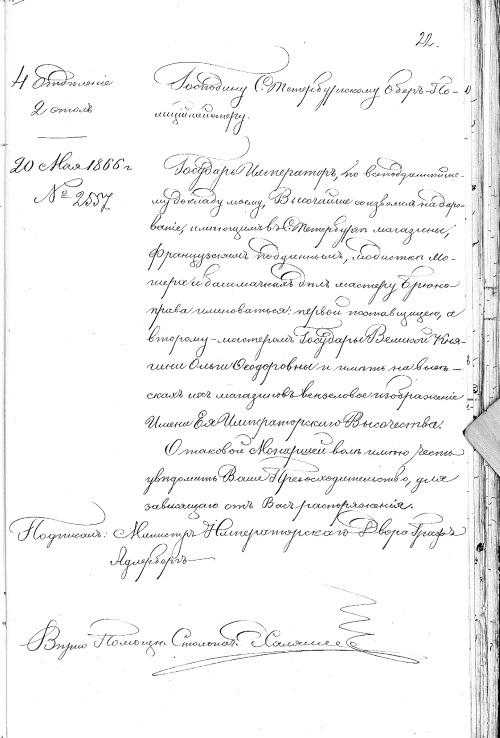 22.
4 Отдѣленіе
2 столъ
Господину С. Петербургскому Оберъ-По-
лицiймейстеру.
20 Мая 1866 г
№ 2557
Государь Императоръ, по всеподданнѣйше-
му докладу моему, Высочайше соизволилъ на даро-
ваніе, имѣющимъ въ С. Петербургѣ магазины,
французскимъ подданнымъ, модисткѣ Мо-
и башмачныхъ дѣлъ мастеру Брюно
права именоваться: первой поставщицею, а
второму-мастеромъ Государыни Великой Кня-
гини Ольги Ѳеодоровны и имѣть на вывѣ-
скахъ ихъ магазиновъ вензеловое изображеніе
Имени Ея Императорскаго Высочества.
О таковой Монаршей волѣ имѣю честь
увѣдомить Ваше Превосходительство, для
зависящаго отъ Васъ распоряженія.
Подписалъ: Министръ Императорскаго Двора Графъ
Адлербергъ
Вѣрно: Помощн. Столонач.